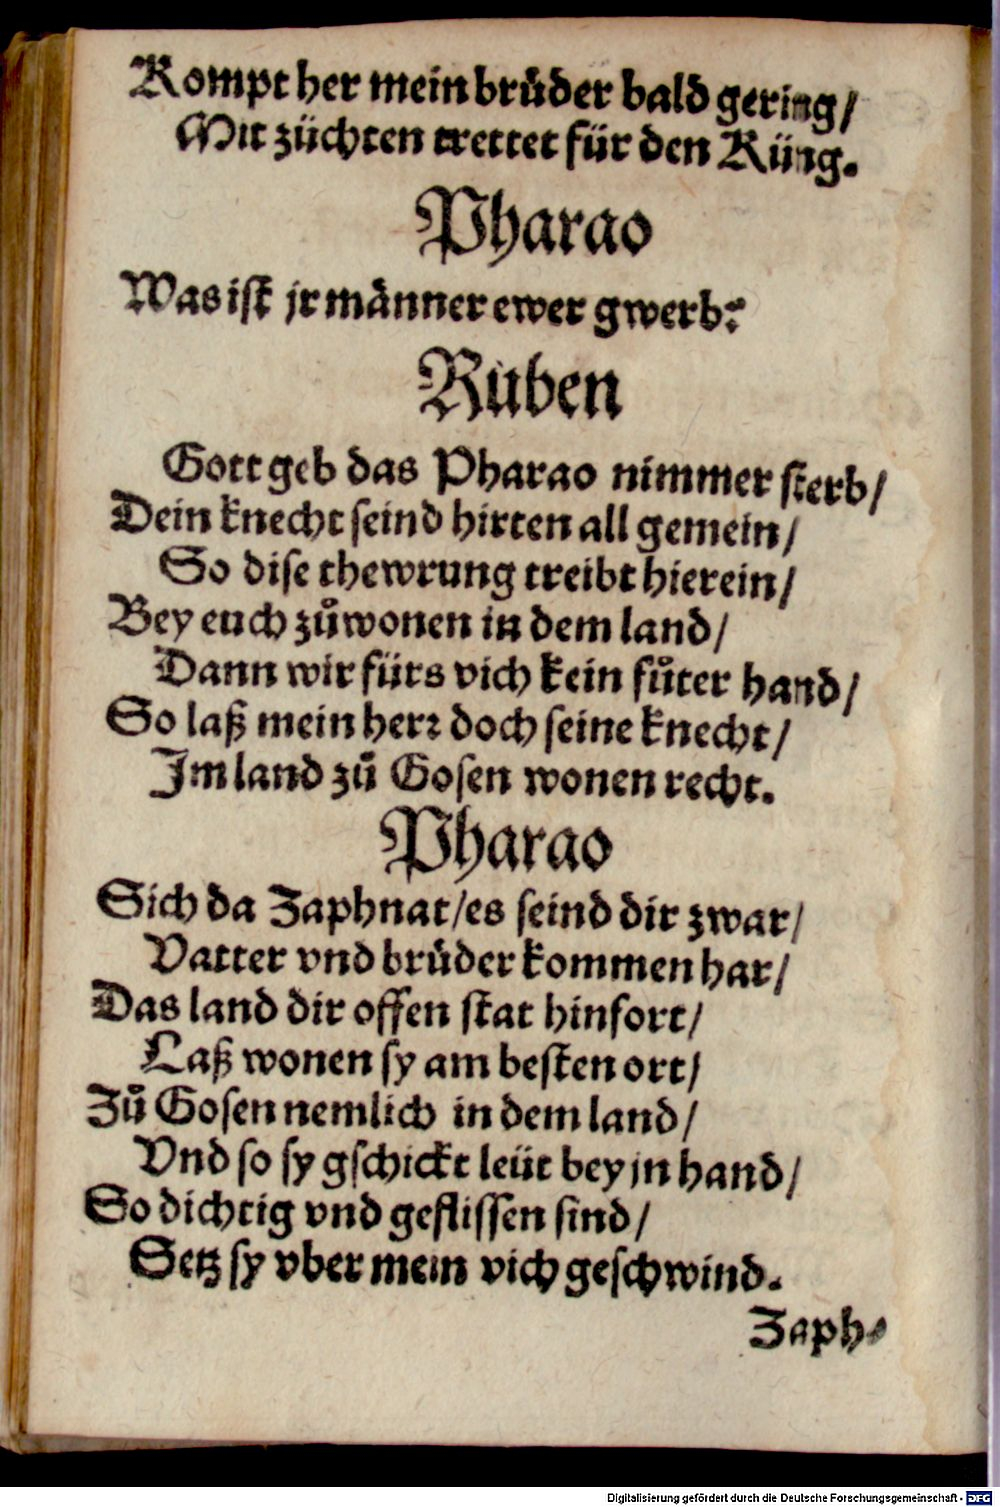 Kompt her mein brůder bald gering/
Mit züchten trettet für den Küng.
Pharao
Was ist jr männer ewer gwerb?
Ruben
Gott geb das Pharao nimmer sterb/
Dein knecht seind hirten all gemein/
So dise thewrung treibt hierein/
Bey euch zůwonen in dem land/
Dann wir fürs vich kein fůter hand/
So laß mein herr doch seine knecht/
Im land zů Gosen wonen recht.
Pharao
Sich da Zaphnat/es seind dir zwar/
Vatter vnd brůder kommen har/
Das land dir offen stat hinfort/
Laß wonen sy am besten ort/
Zů Gosen nemlich in dem land/
Vnd so sy gschickt leüt bey jn hand/
So dichtig vnd geflissen sind/
Setz sy vber mein vich geschwind.
Zaph-
Digitalisierung gefördert durch die Deutsche Forschungsgemeinschaft - DFG